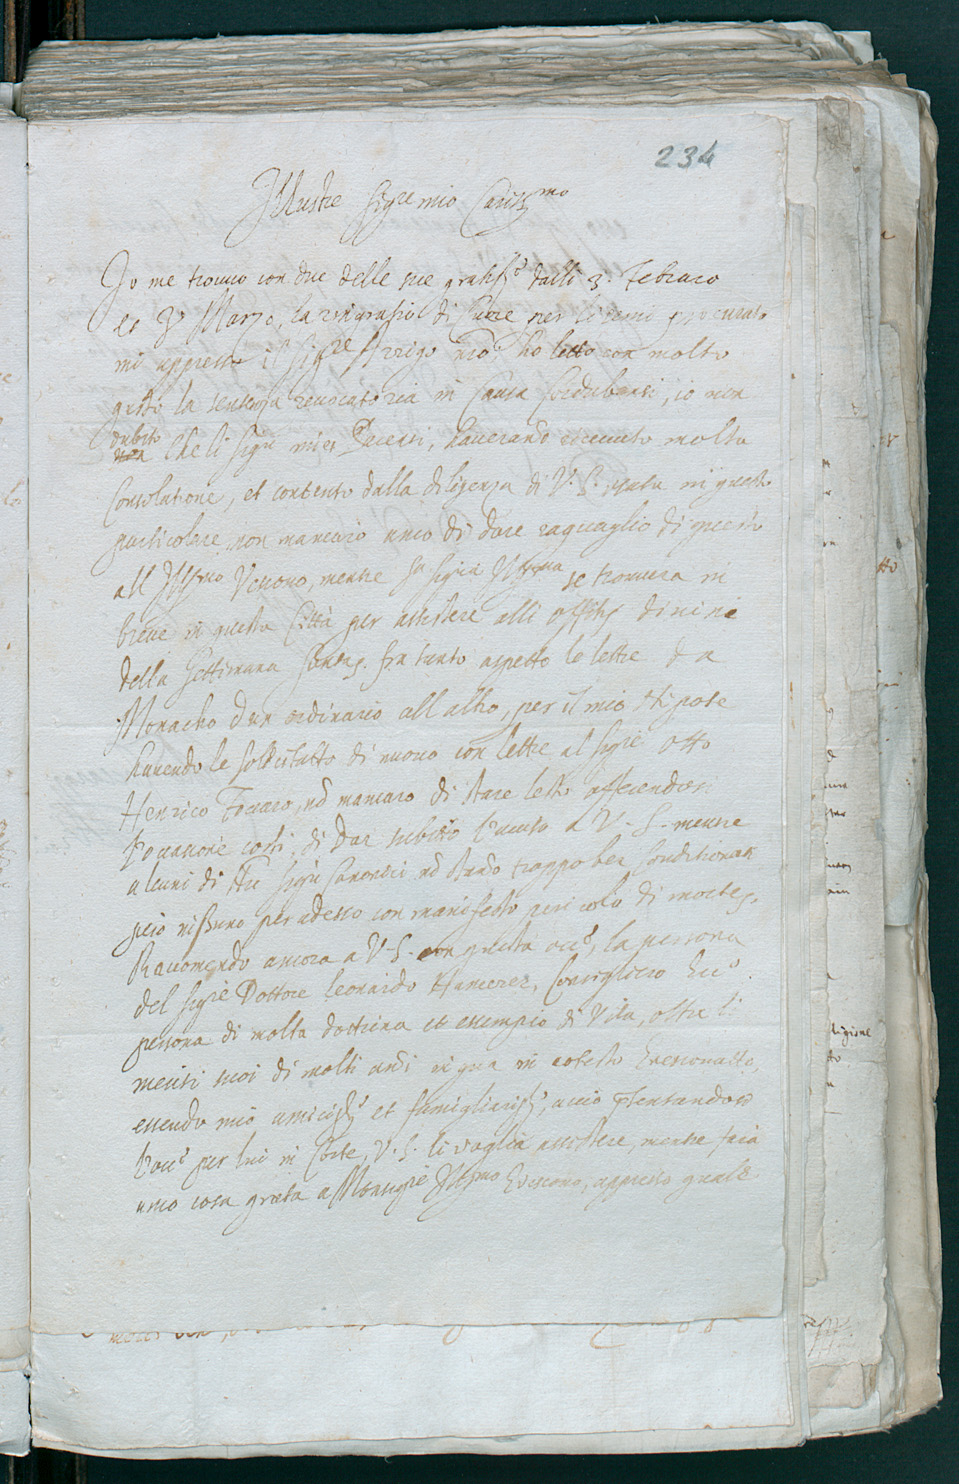 234
Illustre Sigre mio Cariss.mo
Io me trovuo con due delle sue gratiss.e dalli 3. Febraro
et 3. Marzo, la ringratio di Cuore per li semi procurato
mi appresso il Sigre Arrigo mo. ho letto con molto
gusto la sentenza revocatoria in Causa Cordubensi, io non
dubito che li Sigri miei Decensi, haveranno ricevuto molta
Consolatione, et contento dalla diligenza di V. S. usata in questo
particolare, non mancaro anco di dare raguaglio di questo
all Illmo Vescovo, mentre Sa Sigria Illma se trovera in
breve in questa Città per assistere alli offitij divini
della Settimana Santa. fra tanto aspetto le lettre da
Monacho d un ordinario all altro, per il mio Nipote
havendo le sollecitatto di nuovo con lettre al Sigre Otto
Henrico Foccaro, nõ mancaro di stare lesto offerendosi
l'occasione costi, di dar subitto l'aviso a V. S. mentre
alcuni di sti Sigri Canonici nõ stanno troppo ben conditionati
però nissuno per adesso con manifesto pericolo di morte.
Racomando ancora a V. S. con questa occe, la persona
del Sigre Dottore Leonardo Hamerer, Consigliero Ecco.
persona di molta dottrina et essempio di Vita, oltre li
meriti suoi di molti anni in qua in cotesto Vescovatto,
essendo mio amiciss.o et famigliariss.o, accio presentandosi
l'occe per lui in Corte, V. S. li voglia assistere, mentre fara
anco cosa grata a Monsigre Illmo Vescovo, appresso quale